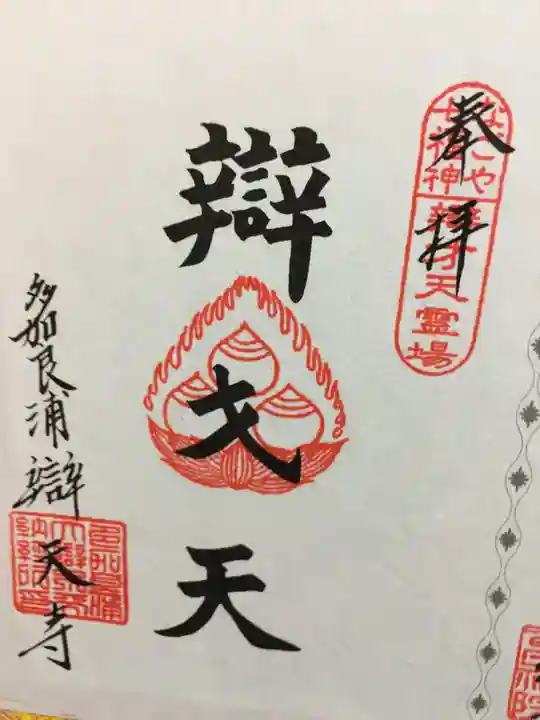 奉拝
なごや七福神
辯才天霊場
辯才天
多加良浦辯天寺